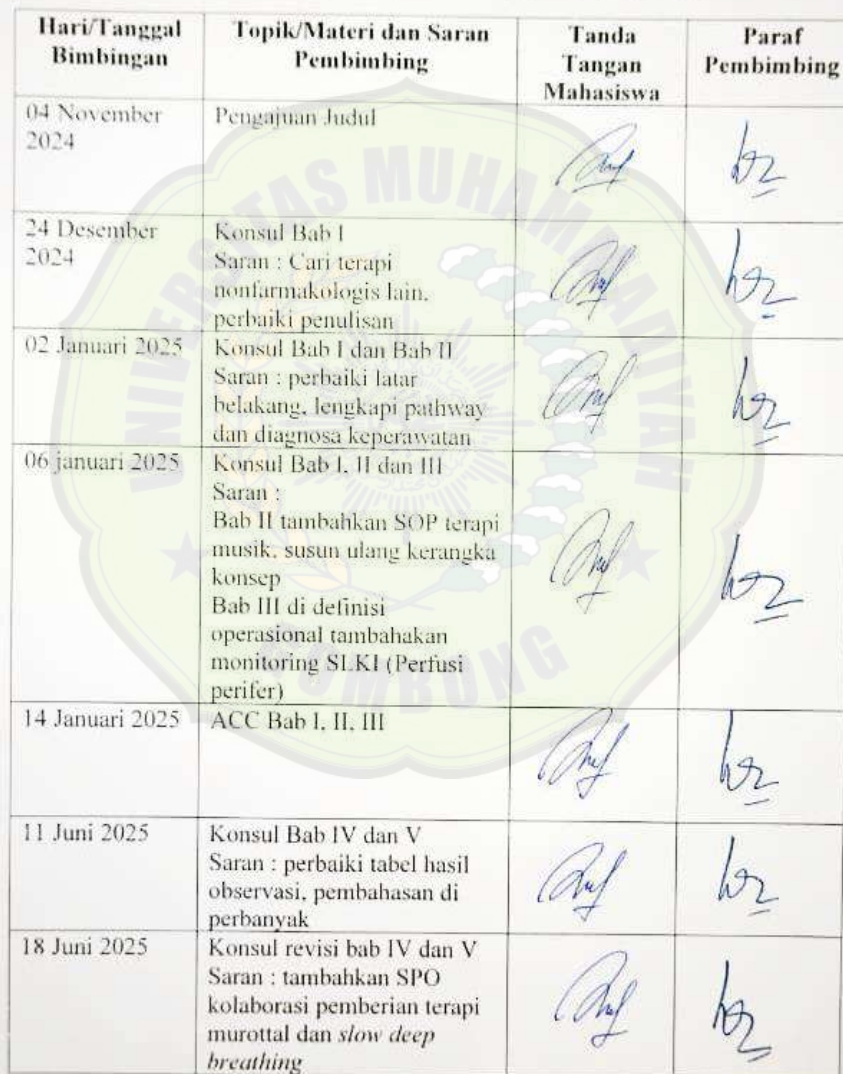 Hari/Tanggal
Bimbingan
Topik/Materi dan Saran
Pembimbing
Tanda
Tangan
Mahasiswa
Paraf
Pembimbing
04 November
2024
Pengajuan Judul
24 Desember
2024
Konsul Bab I
Saran : Cari terapi
nonfarmakologis lain,
perbaiki penulisan
02 Januari 2025
Konsul Bab I dan Bab II
Saran : perbaiki latar
belakang, lengkapi pathway
dan diagnosa keperawatan
06 januari 2025
Konsul Bab I, II dan III
Saran :
Bab II tambahkan SOP terapi
musik, susun ulang kerangka
konsep
Bab III di definisi
operasional tambahakan
monitoring SLKI (Perfusi
perifer)
14 Januari 2025
ACC Bab I, II, III
11 Juni 2025
Konsul Bab IV dan V
Saran : perbaiki tabel hasil
observasi, pembahasan di
perbanyak
18 Juni 2025
Konsul revisi bab IV dan V
Saran : tambahkan SPO
kolaborasi pemberian terapi
murottal dan slow deep
breathing
UNIVERSITAS MUHAMMADIYAH
GOMBONG